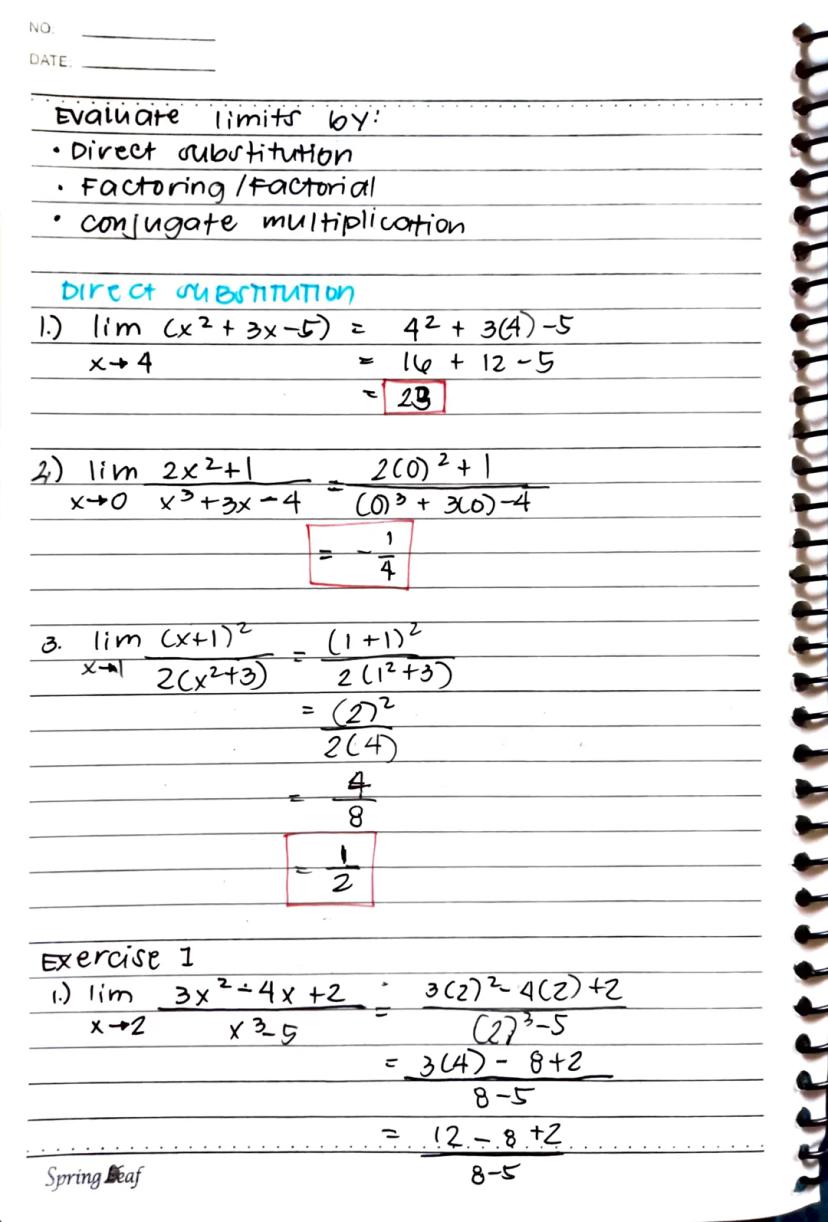 NO.
DATE:
Evaluate limits by:
• Direct substitution
• Factoring/Factorial
• conjugate multiplication
Direct substitution
1.) lim (x² + 3x - 5) = 4² + 3(4) - 5
x→4 = 16 + 12 - 5
= 23
2) lim 2x²+1 = 2(0)² + 1
x→0 x³+3x-4 (0)³ + 3(0)-4
= - 1
4
3. lim (x+1)² = (1+1)²
x→1 2(x²+3) 2(1²+3)
= (2)²
2(4)
= 4
8
= 1
2
Exercise 1
1.) lim 3x²-4x+2 = 3(2)²-4(2)+2
x→2 x³-5 (2)³-5
= 3(4) - 8+2
8-5
= 12-8+2
8-5
Spring Leaf